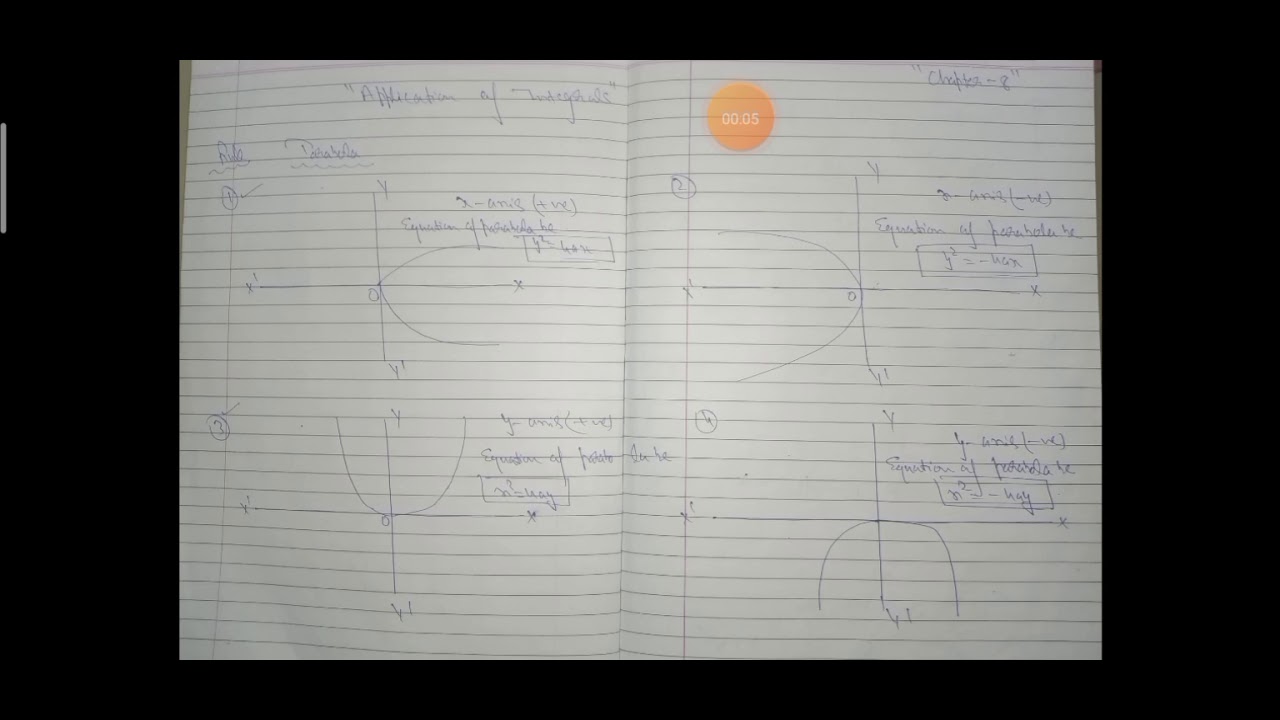 "Application of Integrals"
"Chapter-8"
00:05
Parabola
① ✓
Y
x-axis (+ve)
Equation of parabola be
y² = 4ax
X'
O
X
Y'
②
Y
x-axis (-ve)
Equation of parabola be
y² = -4ax
X'
O
X
Y'
③ ✓
Y
y-axis (+ve)
Equation of parabola be
x² = 4ay
X'
O
X
Y'
④
Y
y-axis (-ve)
Equation of parabola be
x² = -4ay
X'
X
Y'